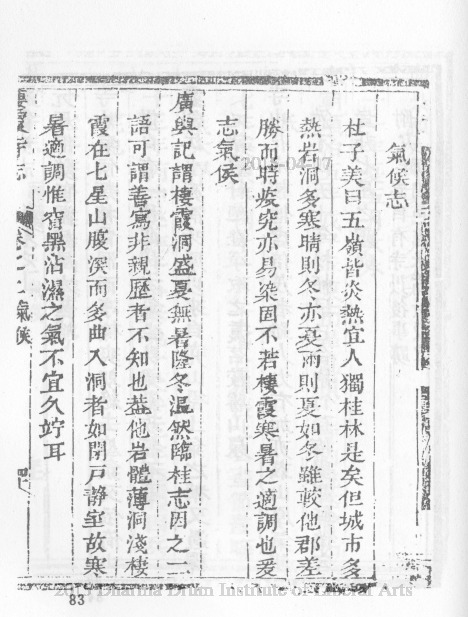 氣候志
杜子美曰五嶺皆炎熱宜人獨桂林是矣但城市多
熱岩洞多寒晴則冬亦夏雨則夏如冬雖較他郡差
勝而時疫究亦易染固不若棲霞寒暑之適調也爰
志氣侯
廣輿記謂棲霞洞盛夏無暑隆冬溫然臨桂志因之二
語可謂善寫非親歷者不知也葢他岩體薄洞淺棲
霞在七星山腹深而多曲入洞者如閉戶靜室故寒
暑適調惟窅黑沾濕之氣不宜久竚耳
棲霞寺志
卷之上 氣候
83
Dharma Drum Institute of Liberal Arts